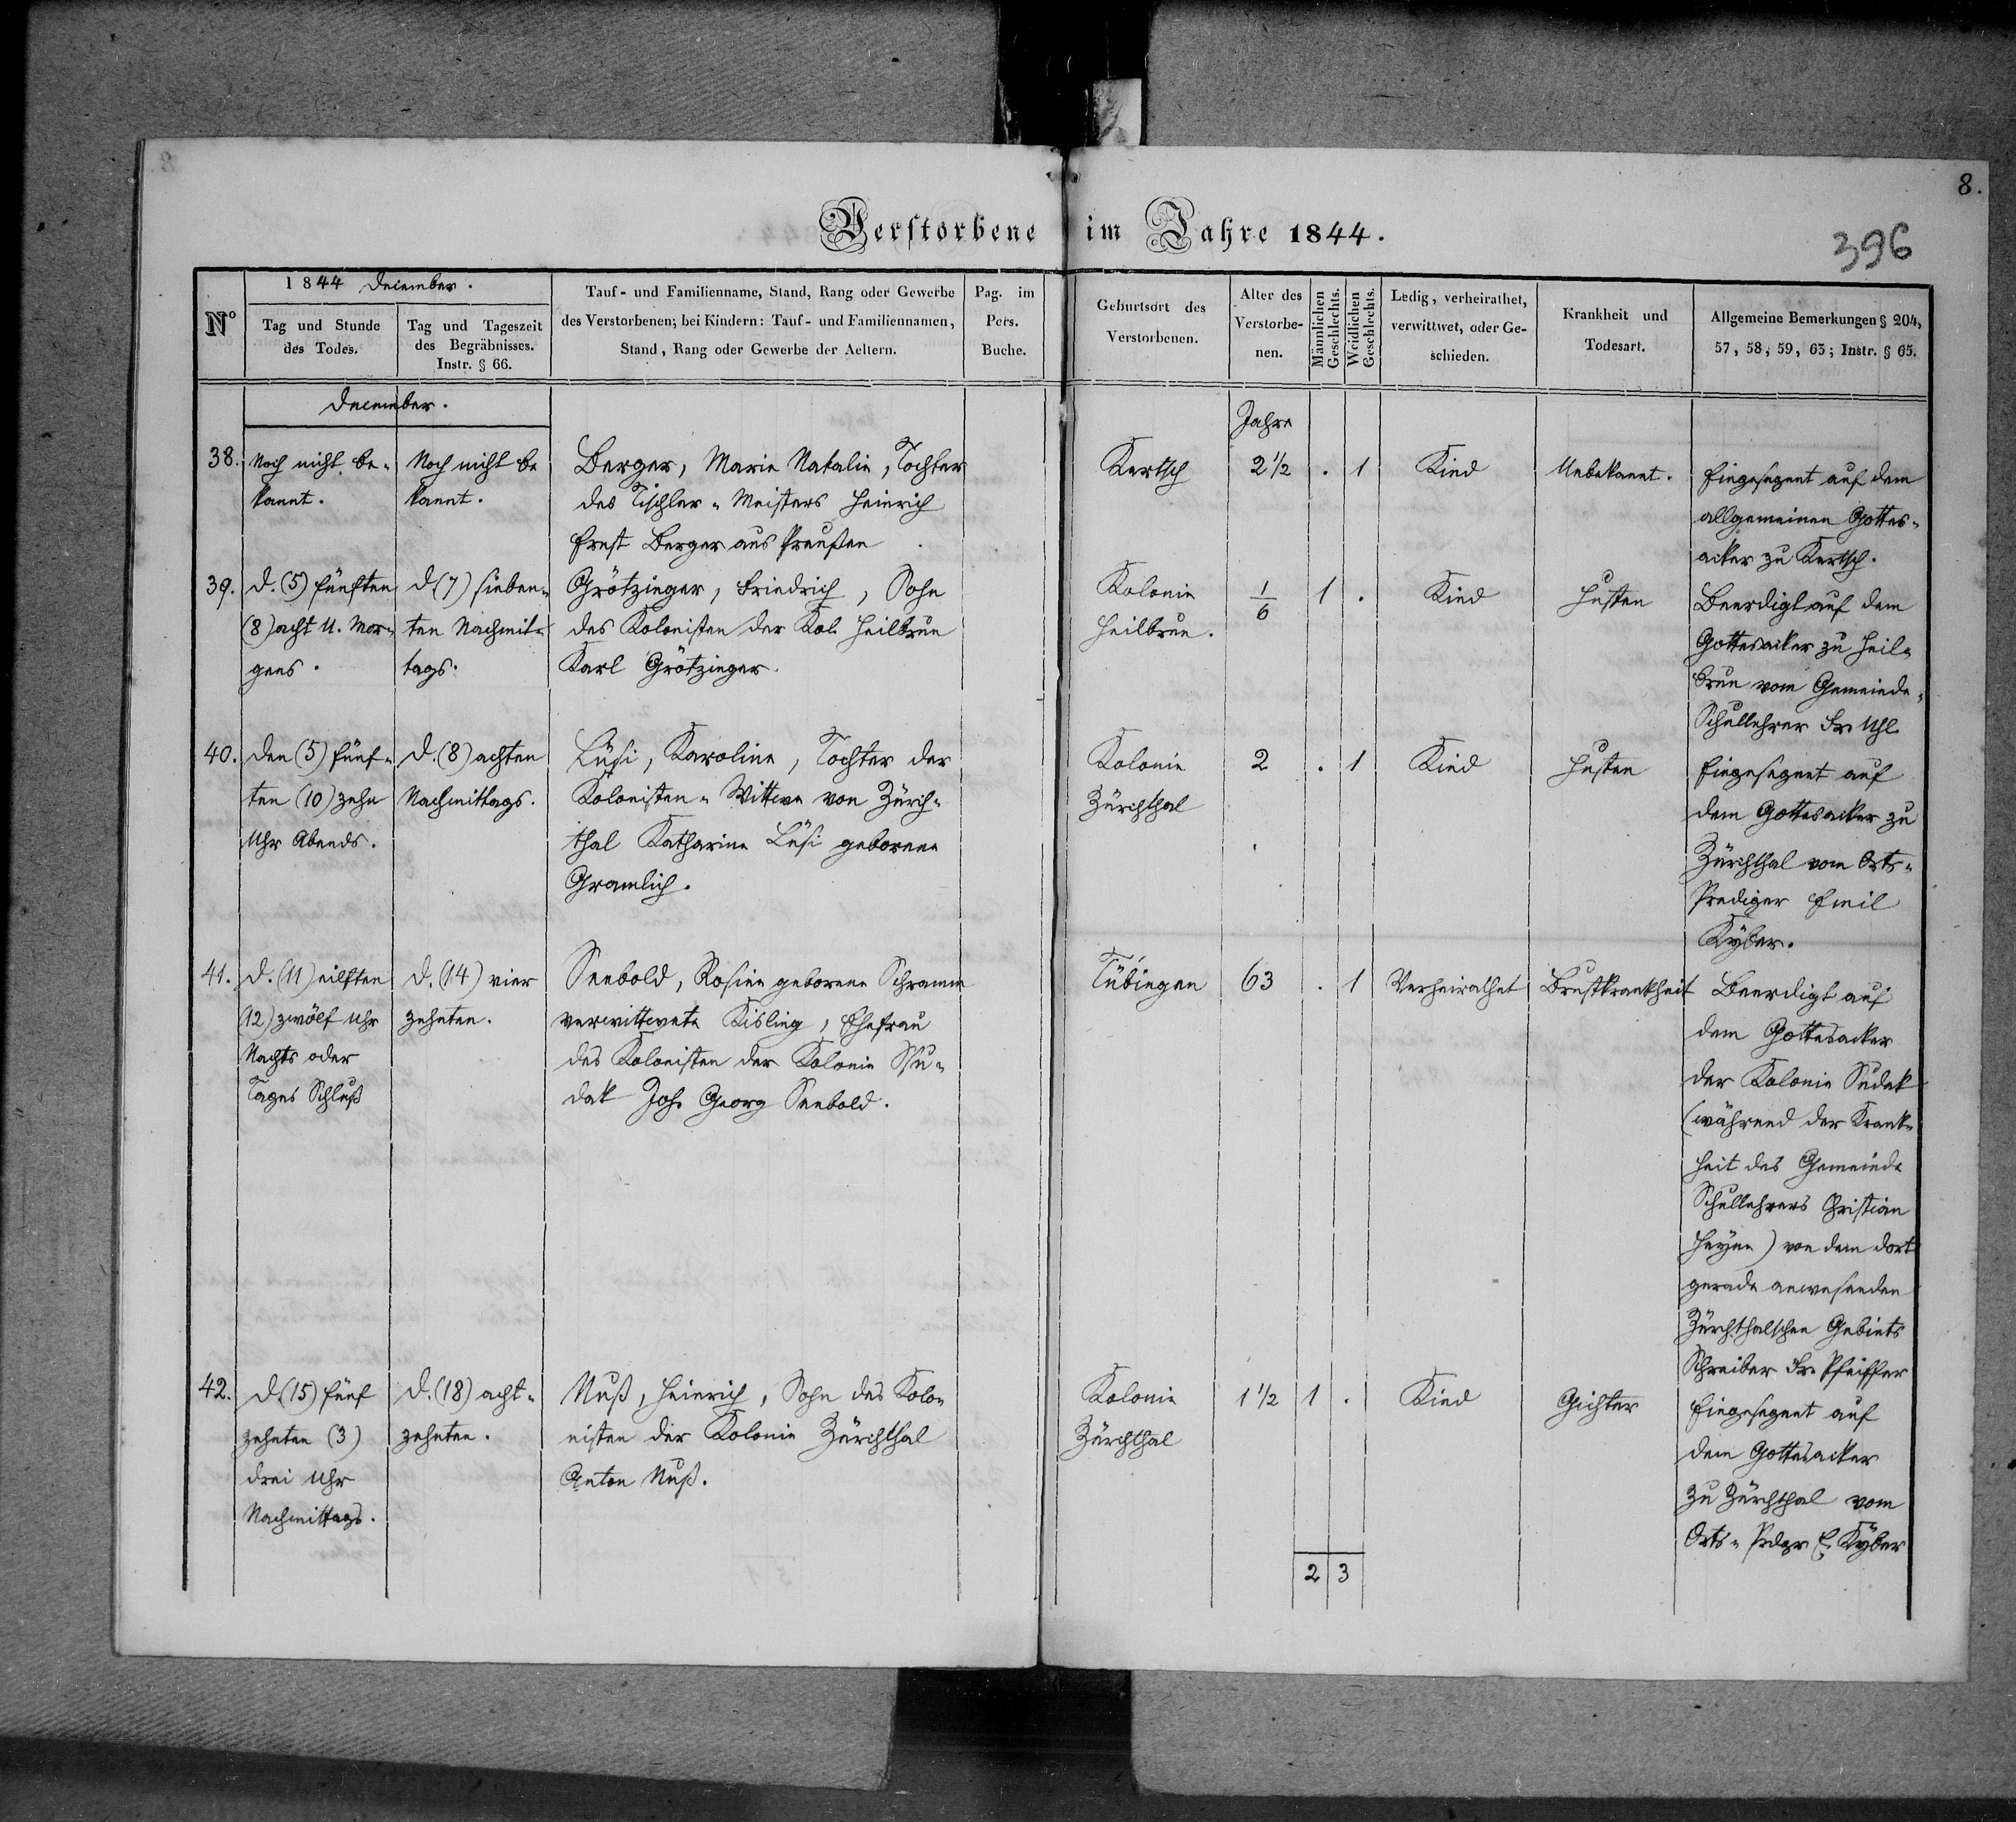 8.
Verstorbene im Jahre 1844.
396
No
1844 December.
Tag und Stunde
des Todes.
Tag und Tageszeit
des Begräbnisses.
Instr. § 66.
Tauf- und Familienname, Stand, Rang oder Gewerbe
des Verstorbenen; bei Kindern: Tauf- und Familiennamen,
Stand, Rang oder Gewerbe der Aeltern.
Pag. im
Pers.
Buche.
Geburtsort des
Verstorbenen.
Alter des
Verstorbe-
nen.
Männlichen
Geschlechts.
Weidlichen
Geschlechts.
Ledig, verheirathet,
verwittwet, oder Ge-
schieden.
Krankheit und
Todesart.
Allgemeine Bemerkungen § 204,
57, 58, 59, 63; Instr. § 65.
December.
Jahre
38.
Noch nicht be-
kannt.
Noch nicht be
kannt.
Berger, Marie Natalie, Tochter
des Tischler-Meisters Heinrich
Ernst Berger aus Preußen
Kertsch
2 1/2
.
1
Kind
Unbekannt.
Eingesegnet auf dem
allgemeinen Gottes-
acker zu Kertsch.
39.
d. (5) fünften
(8) acht U. Mor-
gens.
d (7) sieben-
ten Nachmit-
tags.
Grötzinger, Friedrich, Sohn
des Kolonisten der Kol. Heilbrun
Karl Grötzinger.
Kolonie
Heilbrun.
1/6
1
.
Kind
Husten
Beerdigt auf dem
Gottesacker zu Heil-
brun vom Gemeinde-
Schullehrer Fr. Uhl.
40.
den (5) fünf-
ten (10) zehn
Uhr Abends.
d. (8) achten
Nachmittags.
Lüsi, Karoline, Tochter der
Kolonisten-Wittwe von Zürch-
thal Katharine Lüsi geborene
Gramlich.
Kolonie
Zürchthal
2
.
1
Kind
Husten
Eingesegnet auf
dem Gottesacker zu
Zürchthal vom Orts-
Prediger Emil
Kyber.
41.
d. (11) eilften
(12) zwölf Uhr
Nachts oder
Tages Schluß
d. (14) vier
zehnten.
Seebold, Rosine geborene Schramm
verwittwete Kisling, Ehefrau
des Kolonisten der Kolonie Su-
dak Joh. Georg Seebold.
Tübingen
63
.
1
Verheirathet
Brustkrankheit
Beerdigt auf
dem Gottesacker
der Kolonie Sudak
(während der Krank-
heit des Gemeinde
Schullehrers Christian
Heyne) von dem dort
gerade anwesenden
Zürchthalschen Gebiets
Schreiber Fr. Pfeiffer
42.
d. (15) fünf
zehnten (3)
drei Uhr
Nachmittags.
d. (18) acht-
zehnten.
Nuß, Heinrich, Sohn des Kolo-
nisten der Kolonie Zürchthal
Anton Nuß.
Kolonie
Zürchthal
1 1/2
1
.
Kind
Gichter
Eingesegnet auf
dem Gottesacker
zu Zürchthal vom
Orts-Prdgr E. Kyber
2
3